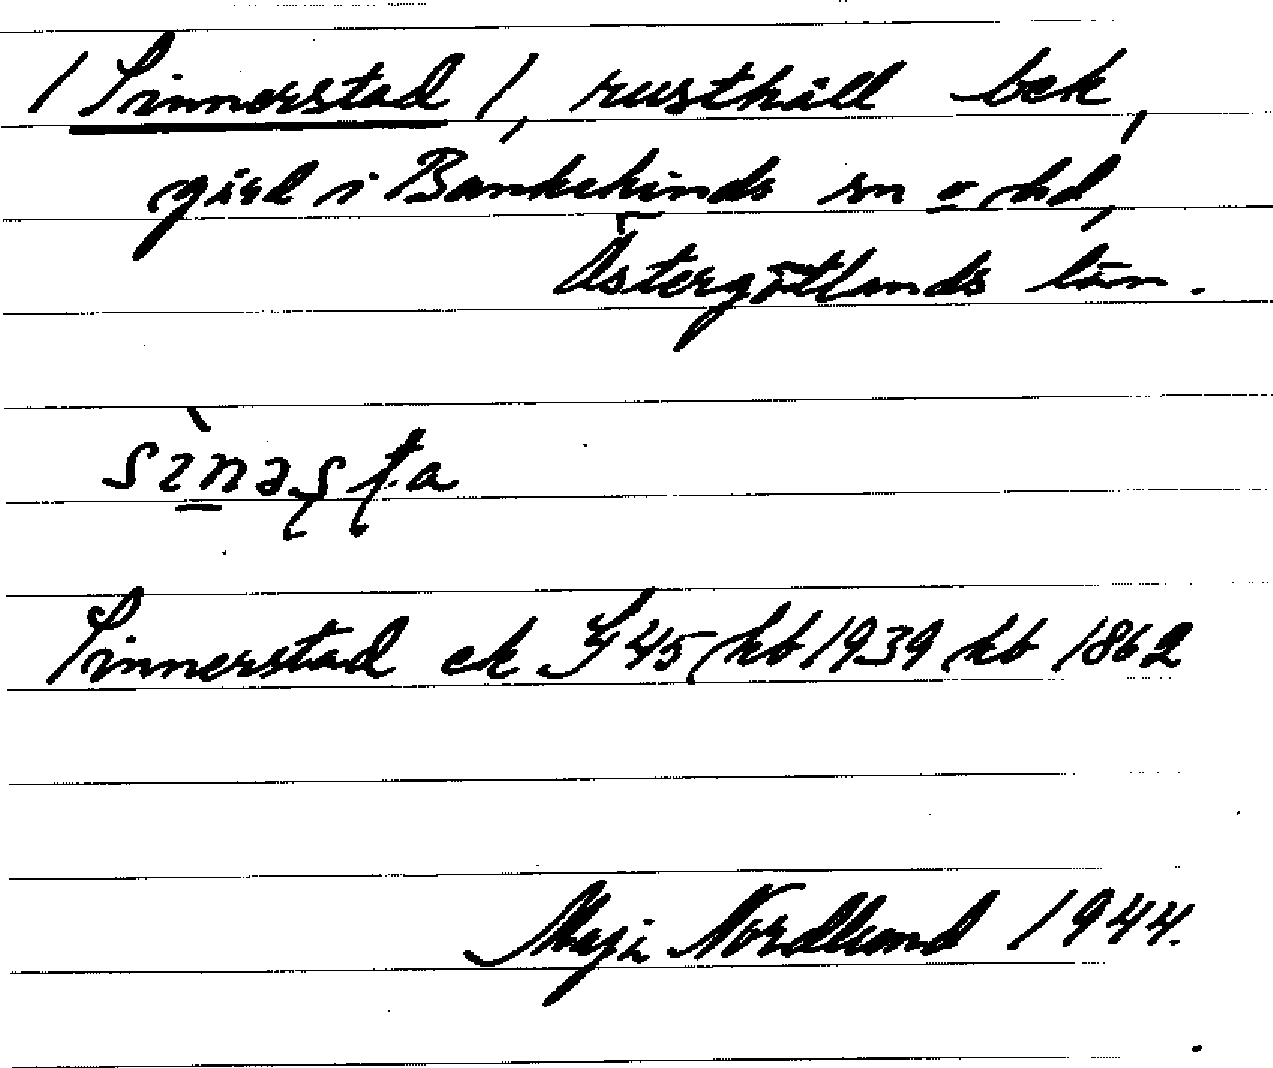 / Sinnerstad /, rusthåll bek,
gård i Bankekinds sn o hd,
Östergötlands län.
sìnəsta
Sinnerstad ek G 45 hb 1939 kb 1862
Maja Nordlund 1944.